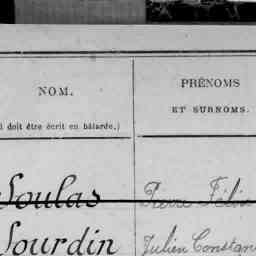 NOM.
PRÉNOMS
ET SURNOMS.
doit être écrit en bâtarde.)
Soulas Pierre Félix
Sourdin Julien Constan